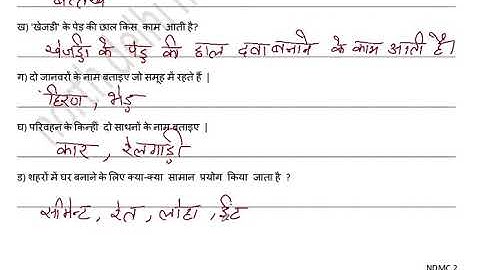 बत्तख
ख) 'खेजडी' के पेड़ की छाल किस काम आती है?
खेजड़ी के पेड़ की छाल दवा बनाने के काम आती है।
ग) दो जानवरों के नाम बताइए जो समूह में रहते हैं |
हिरण, भेड़
घ) परिवहन के किन्हीं दो साधनों के नाम बताइए |
कार, रेलगाड़ी
ड) शहरों में घर बनाने के लिए क्या-क्या सामान प्रयोग किया जाता है ?
सीमेन्ट, रेत, लोहा, ईंट
NDMC 2